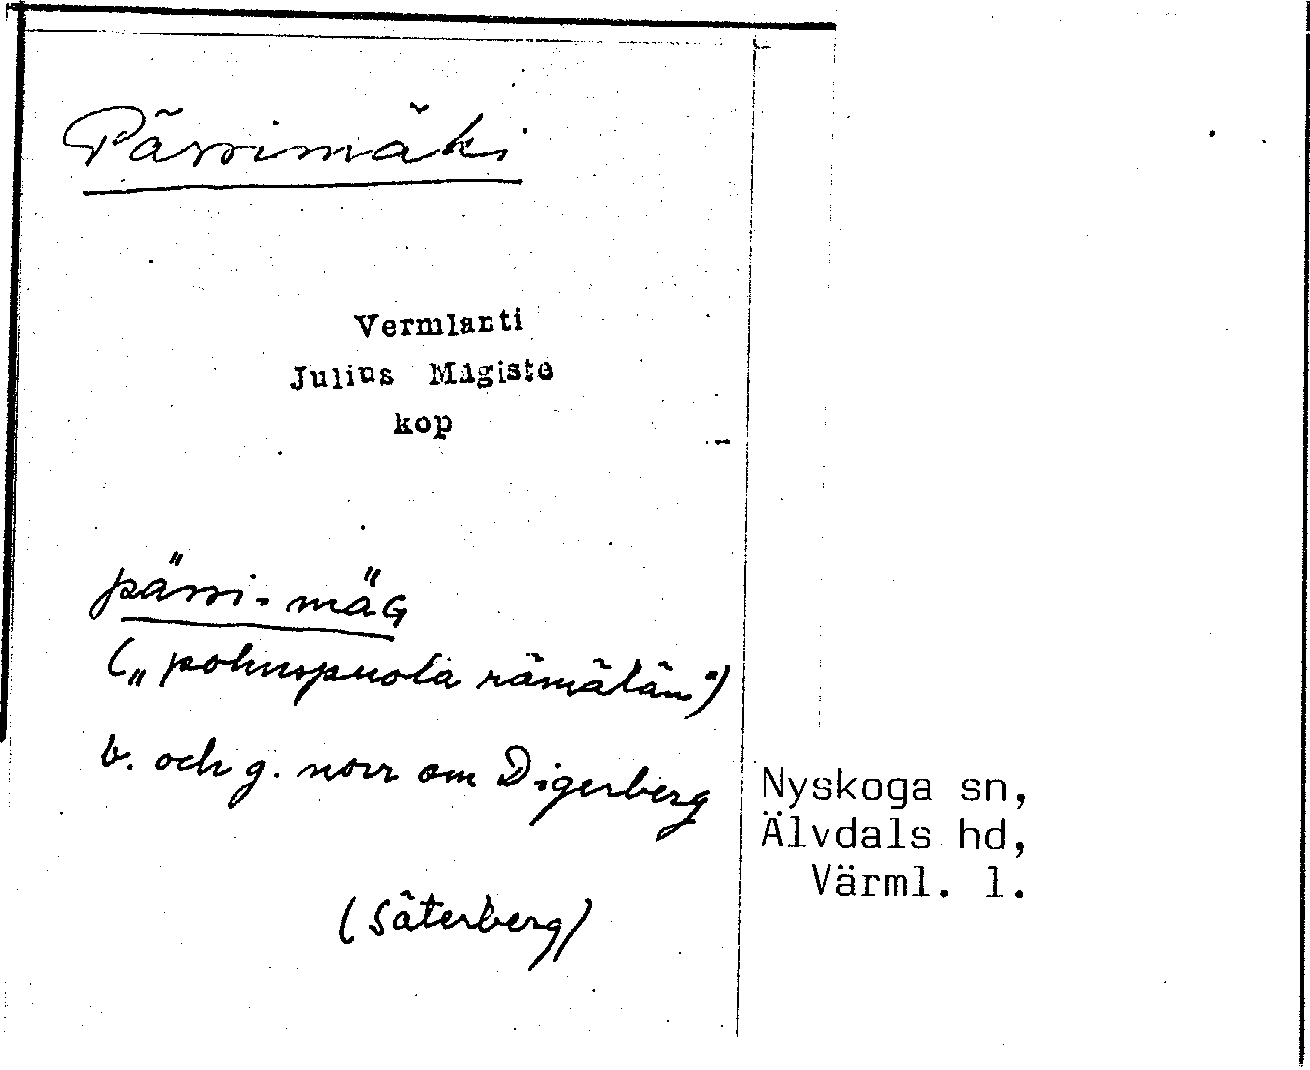 Pärrimäki
Vermlanti
Julius Mägiste
kop
pärri-mäG
(„pohuspuola rämälän”)
b. och g. norr om Digerberg
(Säterberg)
Nyskoga sn,
Älvdals hd,
Värml. l.